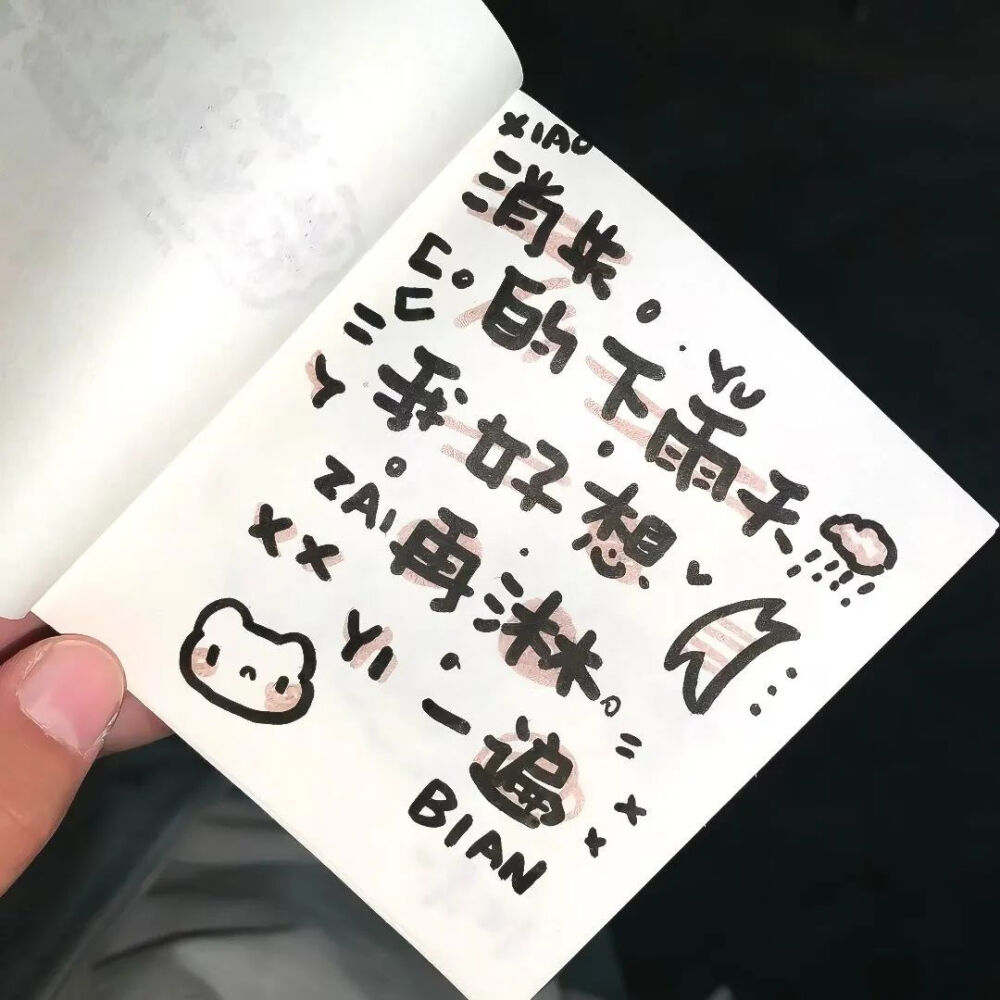 XIAO
消失
的下雨天
我好想
ZAI 再淋
一遍
BIAN